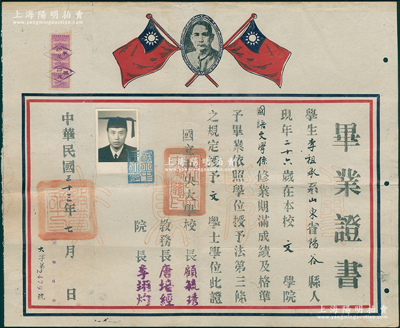 上海陽明拍賣
畢業證書
學生李祖永系山东省陽谷縣人
現年二十六歲在本校文學院
國語文學係修業期滿成績及格準
予畢業依照學位授予法第三條
之規定授予文學士學位此證
國立中央大學校長顧毓琇
教務長唐培經
院長李翊灼
中華民國三十三年七月日